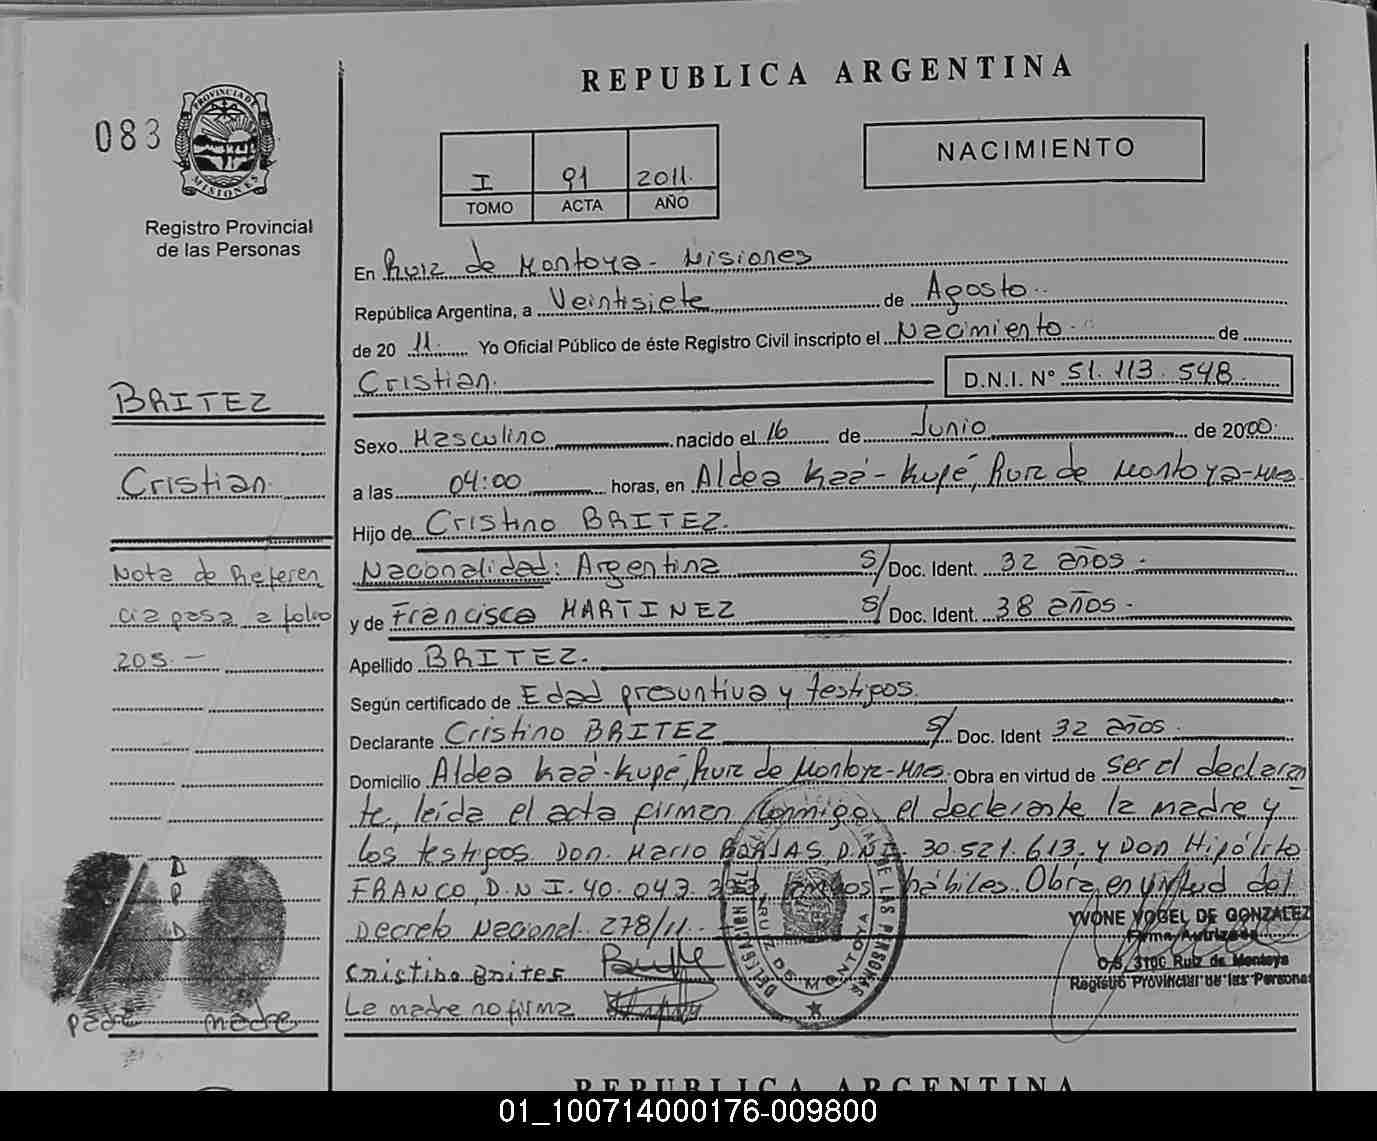 REPUBLICA ARGENTINA
083
PROVINCIA DE MISIONES
Registro Provincial
de las Personas
I 91 2011.
TOMO ACTA AÑO
NACIMIENTO
En Ruiz de Montoya - Misiones
República Argentina, a Veintisiete de Agosto
de 20 11. Yo Oficial Público de éste Registro Civil inscripto el Nacimiento de
Cristian. D.N.I. Nº 51.113.548
Sexo Masculino nacido el 16 de Junio de 2000.
a las 04:00 horas, en Aldea Kaá-Kupé, Ruiz de Montoya-Mnes.
Hijo de Cristino BRITEZ.
Nacionalidad: Argentina S/ Doc. Ident. 32 años.
y de Francisca MARTINEZ S/ Doc. Ident. 38 años.
Apellido BRITEZ.
Según certificado de Edad presuntiva y testigos.
Declarante Cristino BRITEZ S/ Doc. Ident 32 años.
Domicilio Aldea Kaá-Kupé, Ruiz de Montoya-Mnes. Obra en virtud de ser el declaran
te, leída el acta firman conmigo el declarante la madre y
los testigos Don. Mario BORJAS, D.N.I. 30.521.613, y Don Hipólito
FRANCO, D.N.I. 40.043. hábiles. Obra en virtud del
Decreto Nacional 278/11.
Cristino Brites
La madre no firma
BRITEZ
Cristian.
Nota de Referen
cia pasa a folio
205.-
D
P
D
padre madre
DELEGACION DE LAS PERSONAS
RUIZ DE MONTOYA
YVONE VOGEL DE GONZALEZ
Firma Autrizada
O.S. 3100 Ruiz de Montoya
Registro Provincial de las Personas
REPUBLICA ARGENTINA
01_100714000176-009800